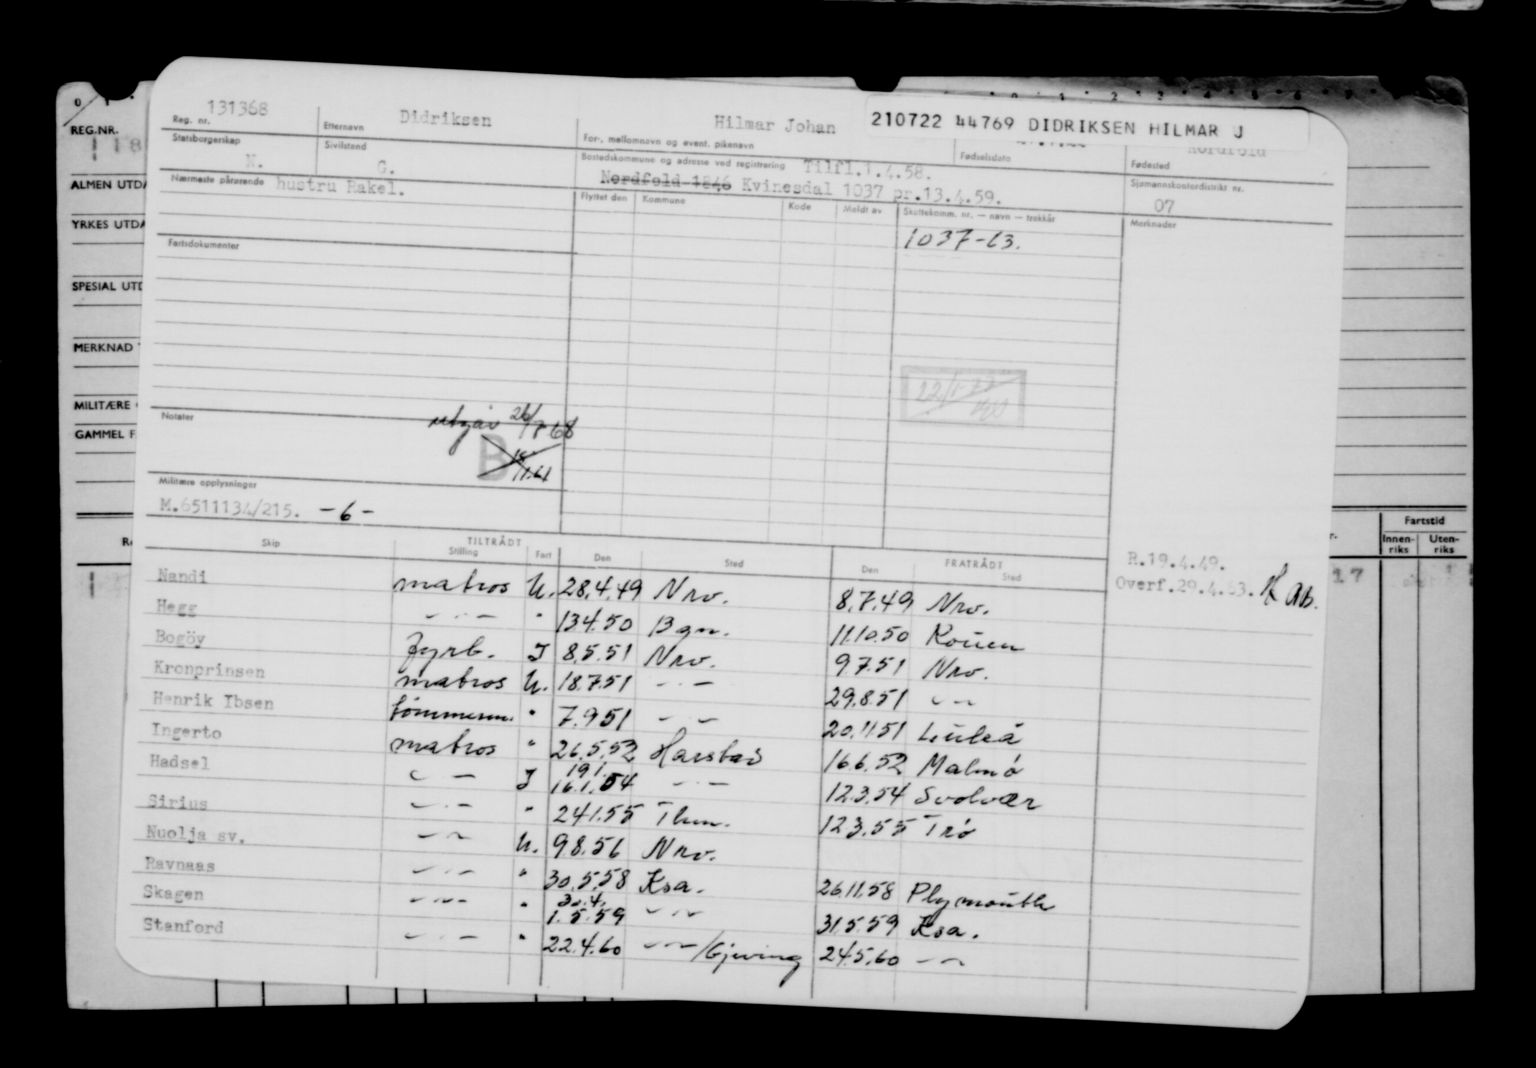 REG.NR.
ALMEN UTDA
YRKES UTDA
SPESIAL UTD
MERKNAD
MILITÆRE
GAMMEL F
131368
Reg. nr.
Etternavn Didriksen
Hilmar Johan
For-, mellomnavn og event. pikenavn
210722 44769 DIDRIKSEN HILMAR J
Statsborgerskap N.
Sivilstand G.
Bostedskommune og adresse ved registrering Tilfl.1.4.58.
Nordfold 1846 Kvinesdal 1037 pr.13.4.59.
Fødselsdato
Fødested Nordfold
Nærmeste pårørende hustru Rakel.
Sjømannskontordistrikt nr.
07
Flyttet den Kommune Kode Meldt av Skattekomm. nr. — navn — trekkår
1037-63.
Merknader
Fartsdokumenter
Notater
utgår 26/7 68
B
Militære opplysninger
M.6511134/215. -6-
TILTRÅDT FRATRÅDT
Skip Stilling Fart Den Sted Den Sted
Fartstid
Innen-riks Uten-riks
17
R.19.4.49.
Overf.29.4.63.
Nandi matros U. 28.4.49 Nrv. 8.7.49 Nrv.
Hegg — " — " 13.4.50 Bgn. 11.10.50 Rouen
Bogöy fyrb. I 8.5.51 Nrv. 9.7.51 Nrv.
Kronprinsen matros U. 18.7.51 — " — 29.8.51 — " —
Henrik Ibsen tömmerm. " 7.9.51 — " — 20.11.51 Luleå
Ingerto matros " 26.5.52 Harstad 16.6.52 Malmö
Hadsel — " — I 19.1. 16.1.54 — " — 12.3.54 Svolvær
Sirius — " — " 24.1.55 Thm. 12.3.55 Trö
Nuolja sv. — " — U. 9.8.56 Nrv.
Ravnaas — " — " 30.5.58 Ksa. 26.11.58 Plymouth
Skagen — " — " 30.4. 1.5.59 — " — 31.5.59 Ksa.
Stanford — " — " 22.4.60 — " — /Gjeving 24.5.60 — " —